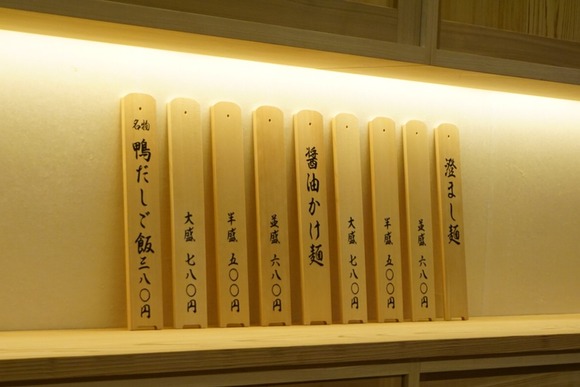 澄まし麺
並盛 六八〇円
半盛 五〇〇円
大盛 七八〇円
醤油かけ麺
並盛 六八〇円
半盛 五〇〇円
大盛 七八〇円
名物
鴨だしご飯 三八〇円